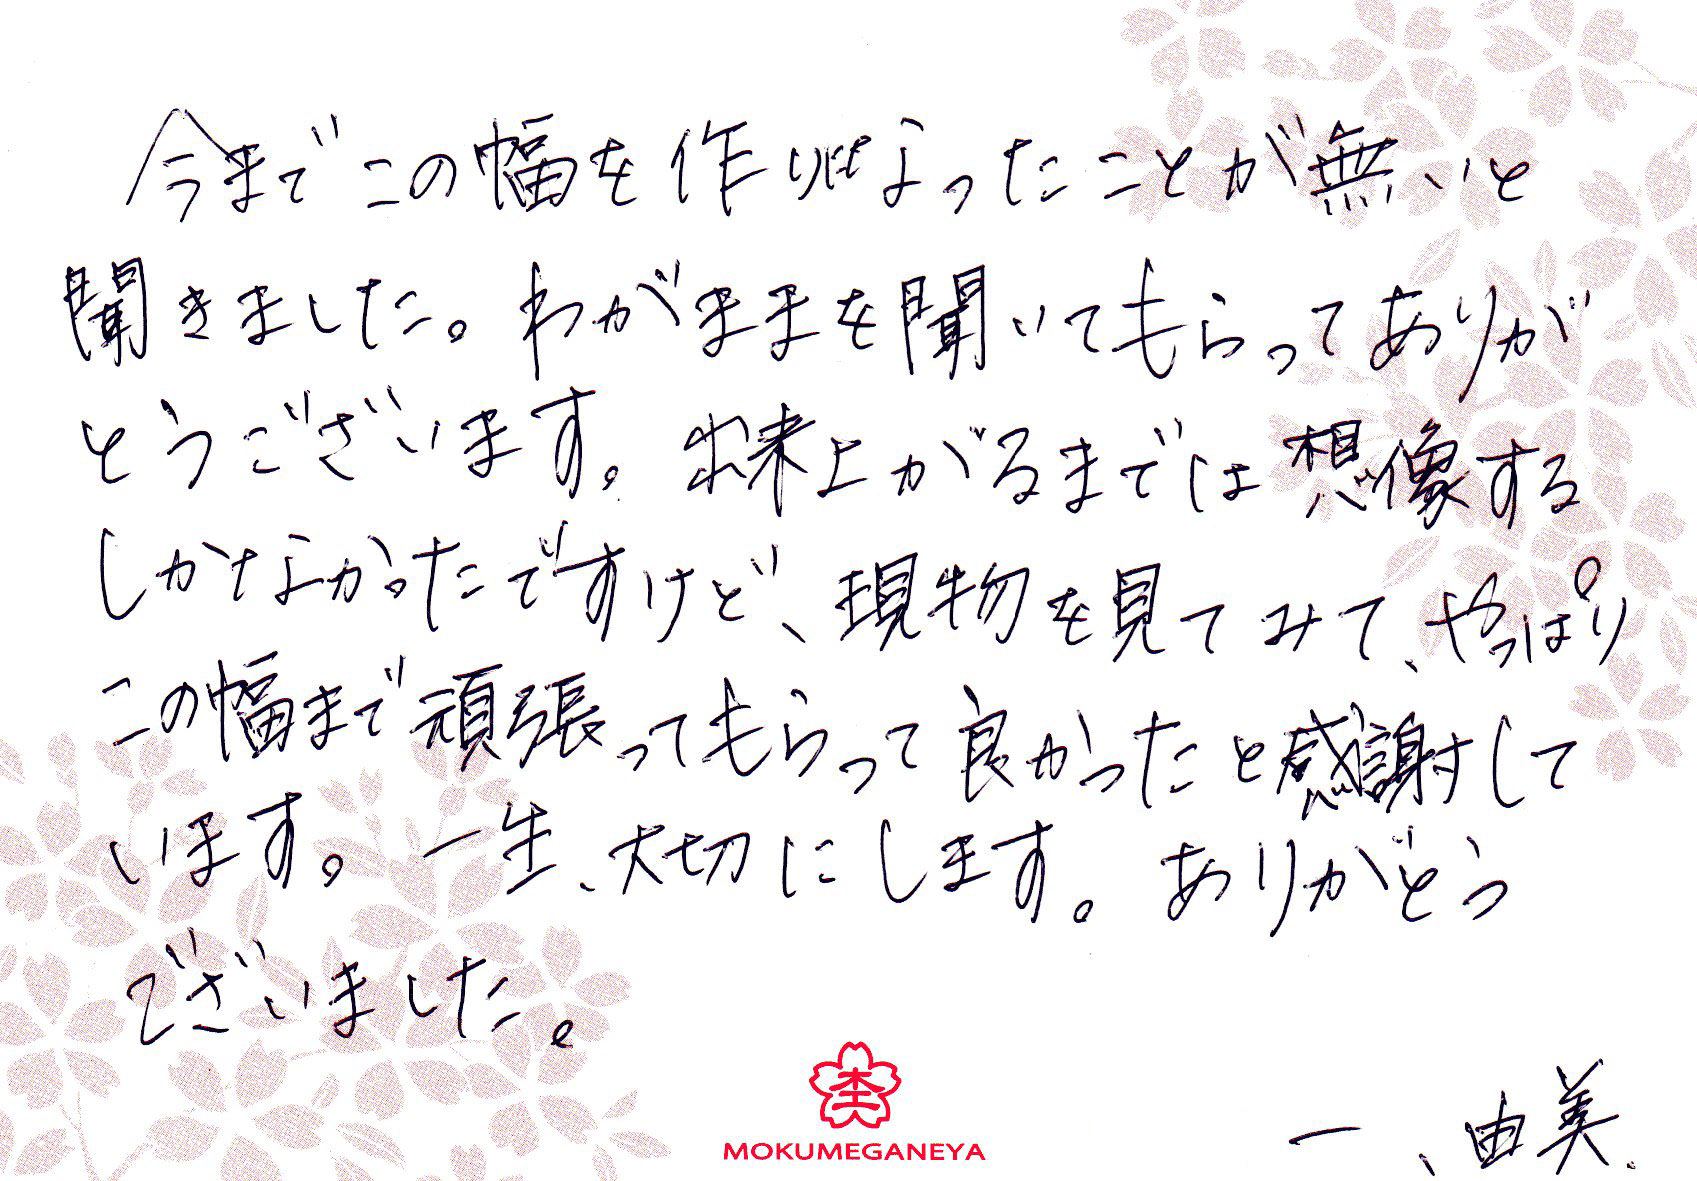 今までこの幅を作りはなったことが無いと
聞きました。わがままを聞いてもらってありが
とうございます。出来上がるまでは想像する
しかなかったですけど、現物を見てみて、やっぱり
この幅まで頑張ってもらって良かったと感謝して
います。一生、大切にします。ありがとう
ございました。
MOKUMEGANEYA
一、由美.